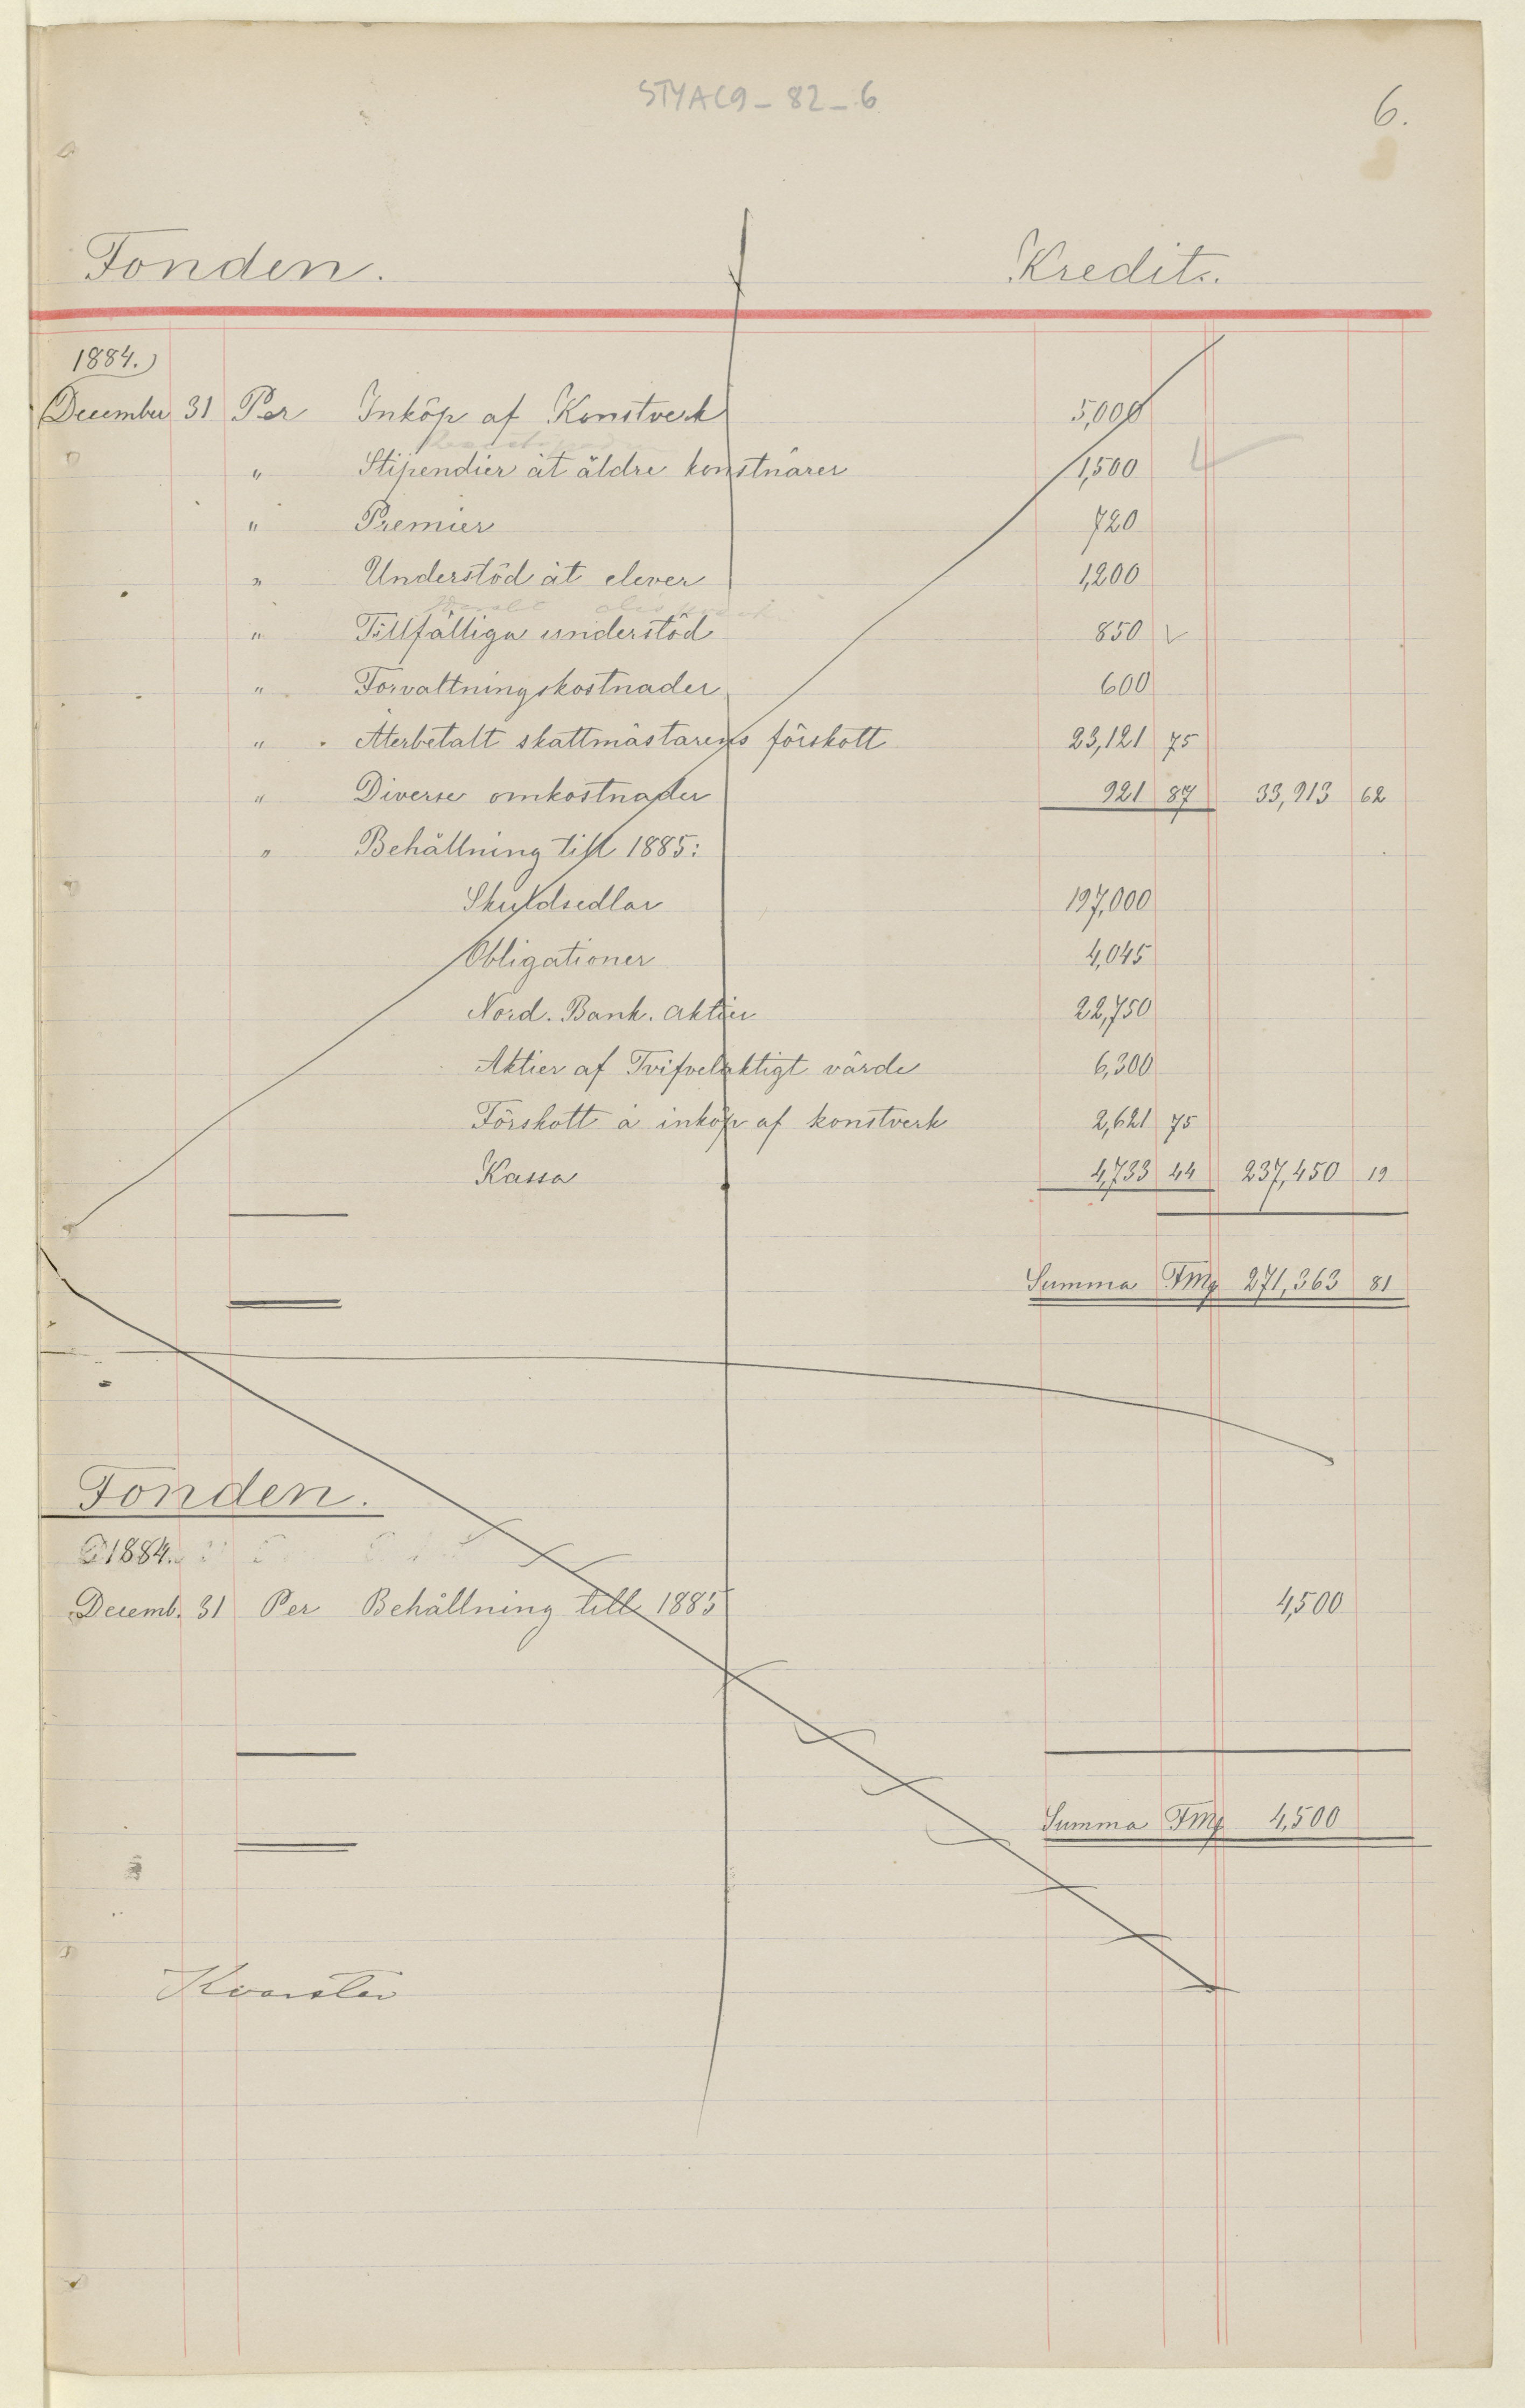 STYAC9_82_6
6.
Fonden. Kredit.
1884.
December 31 Per Inköp af Konstverk 5,000
" Stipendier åt äldre konstnärer 1,500
" Premier 720
" Understöd åt elever 1,200
" Tillfälliga understöd 850
" Förvaltningskostnader 600
" Återbetalt skattmästarens förskott 23,121 75
" Diverse omkostnader 921 87 33,913 62
" Behållning till 1885:
Skuldsedlar 197,000
Obligationer 4,045
Nord. Bank. Aktier 22,750
Aktier af Tvifvelaktigt värde 6,300
Förskott à inköp af konstverk 2,621 75
Kassa 4,733 44 237,450 19
Summa FMg 271,363 81
Fonden.
1884.
Decemb. 31 Per Behållning till 1885 4,500
Summa FMg 4,500